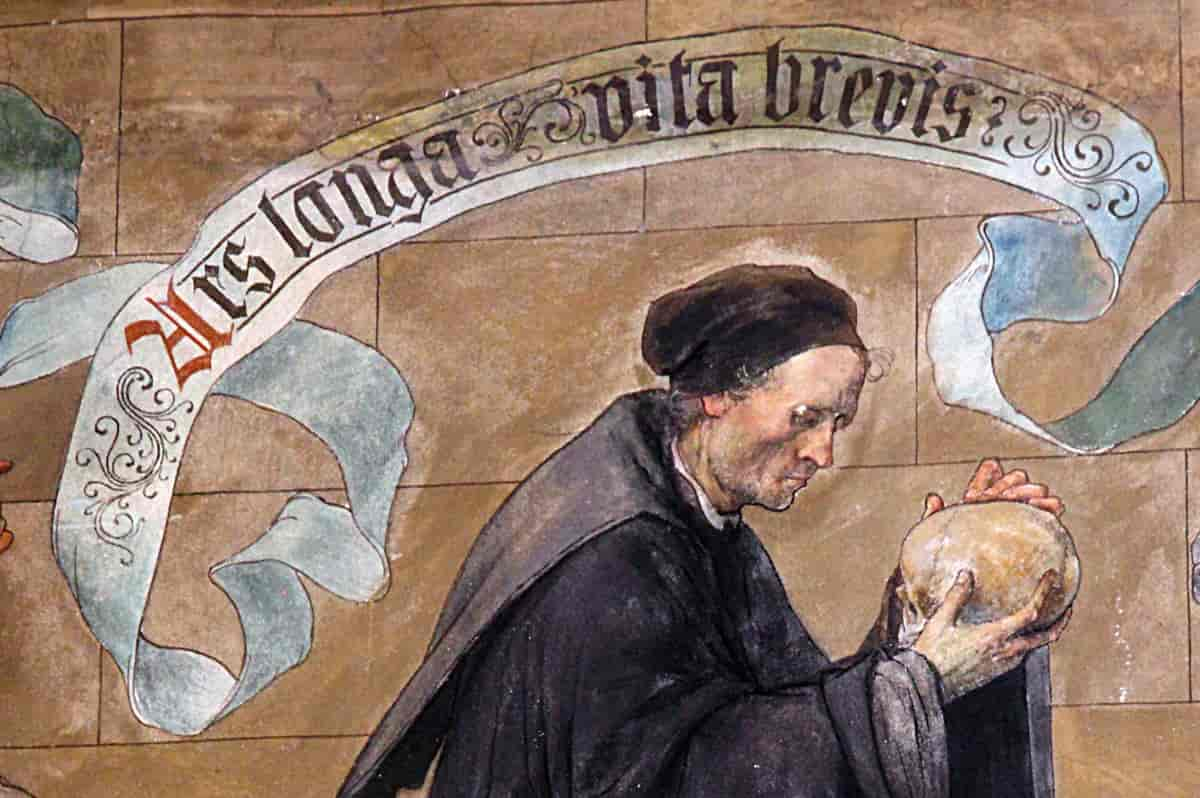 Ars longa vita brevis